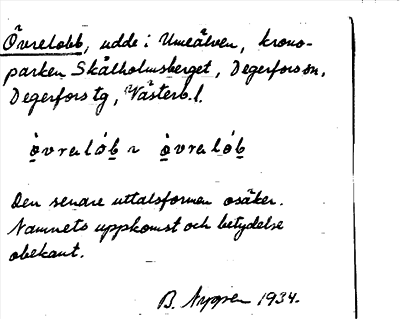 Övrelobb, udde i Umeälven, krono-
parken Skålholmsberget, Degerfors sn,
Degerfors tg, Västerb. l.
òvrələ́b ~ òvrəló̱b
Den senare uttalsformen osäker.
Namnets uppkomst och betydelse
obekant.
B. Nygren 1934.